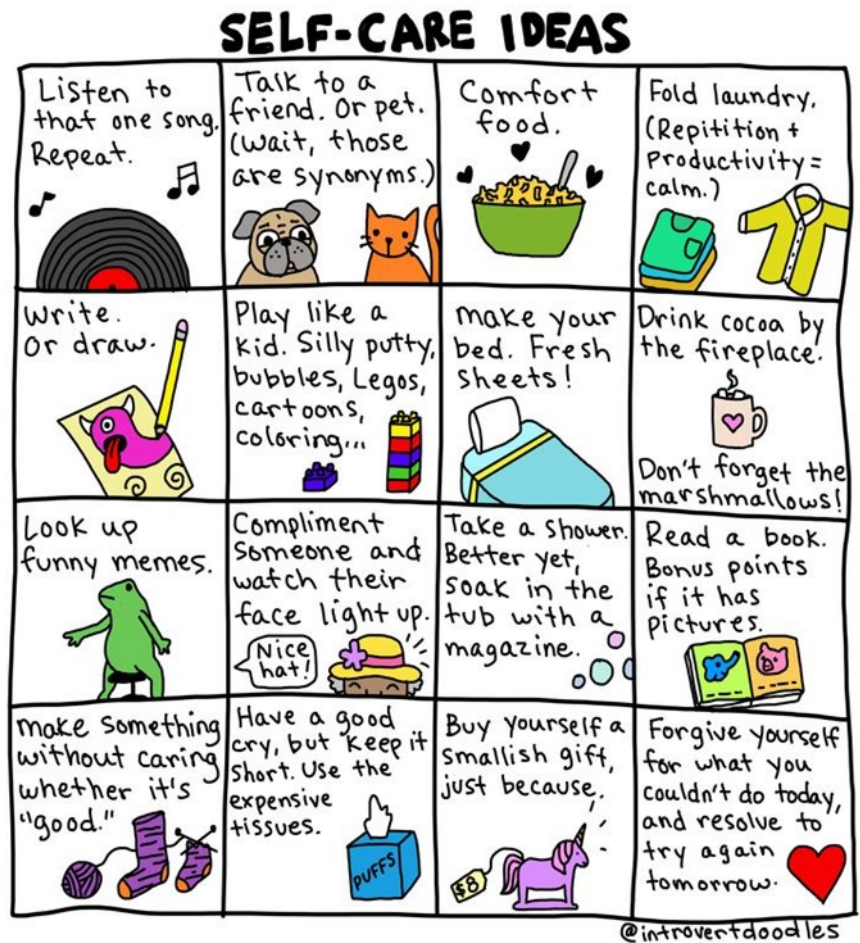 SELF-CARE IDEAS
Listen to
that one song.
Repeat.
Talk to a
friend. Or pet.
(Wait, those
are synonyms.)
Comfort
food.
Fold laundry.
(Repitition +
Productivity =
calm.)
Write.
Or draw.
Play like a
kid. Silly putty,
bubbles, Legos,
cartoons,
coloring...
make your
bed. Fresh
Sheets!
Drink cocoa by
the fireplace.
Don't forget the
marshmallows!
Look up
funny memes.
Compliment
Someone and
watch their
face light up.
Nice
hat!
Take a shower.
Better yet,
soak in the
tub with a
magazine.
Read a book.
Bonus points
if it has
pictures.
make something
without caring
whether it's
"good."
Have a good
cry, but keep it
short. Use the
expensive
tissues.
PUFFS
Buy yourself a
smallish gift,
just because.
$8
Forgive yourself
for what you
couldn't do today,
and resolve to
try again
tomorrow.
@introvertdoodles